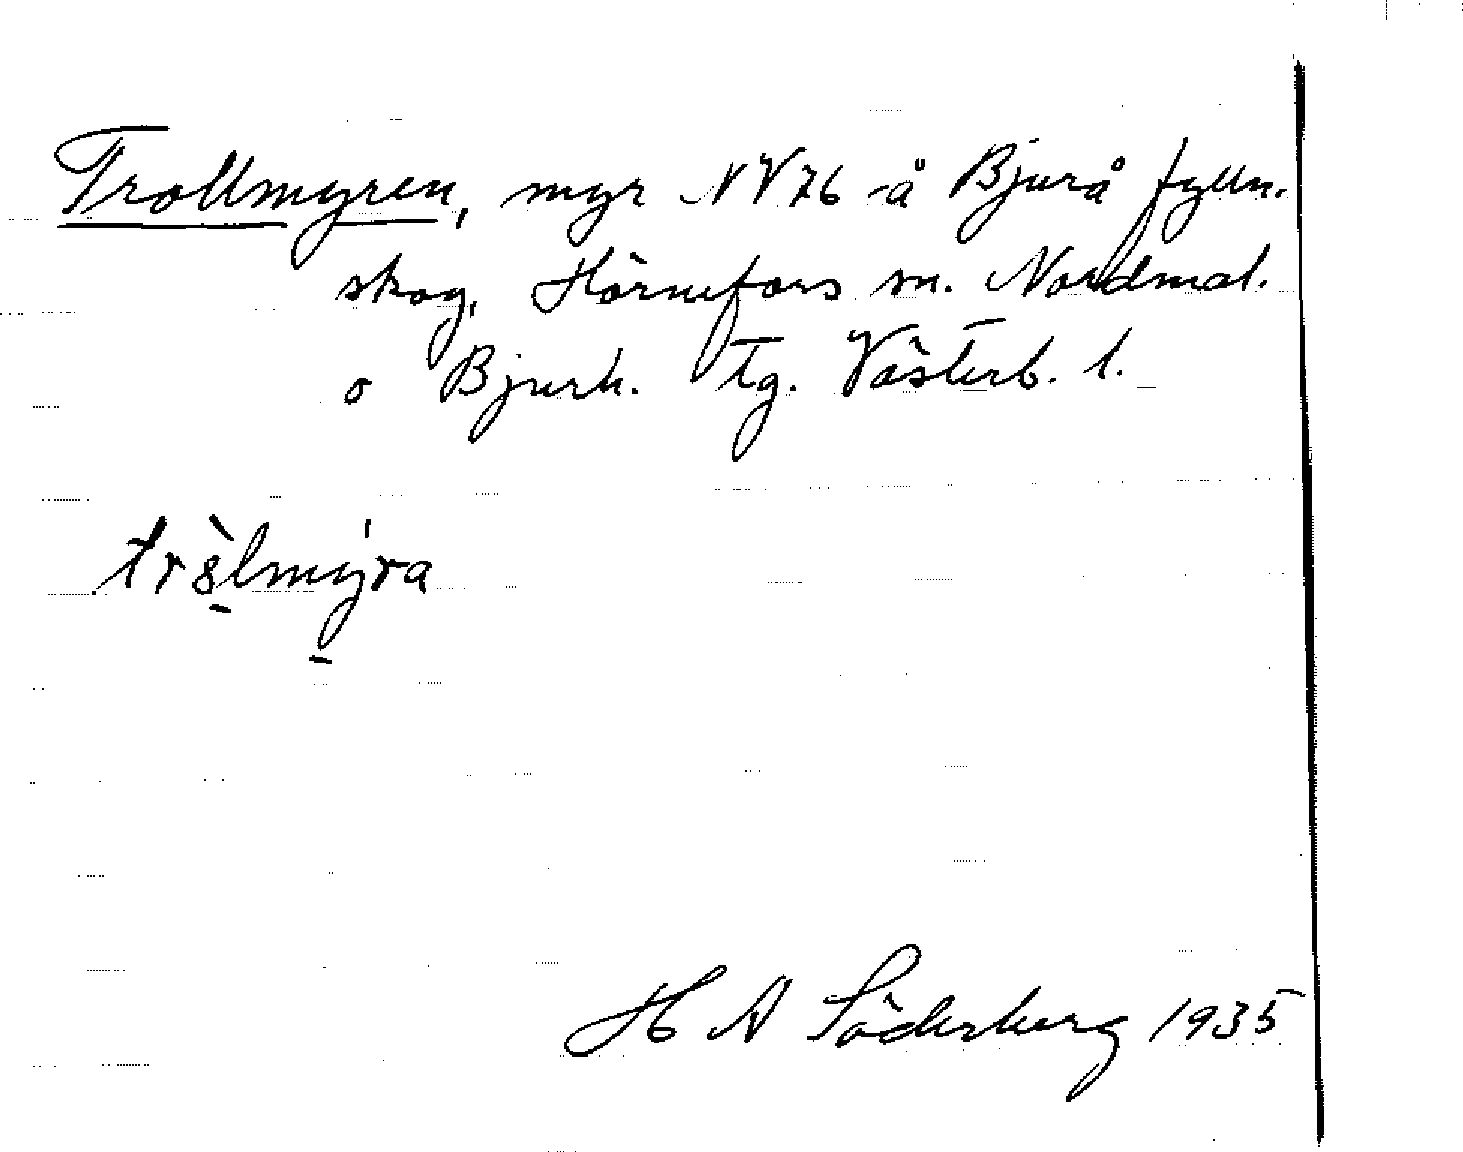 Trollmyren, myr NV76 å Bjurå fylln.
skog, Hörnefors sn. Nordmal.
o Bjurh. tg. Västerb. l.
H A Söderberg 1935